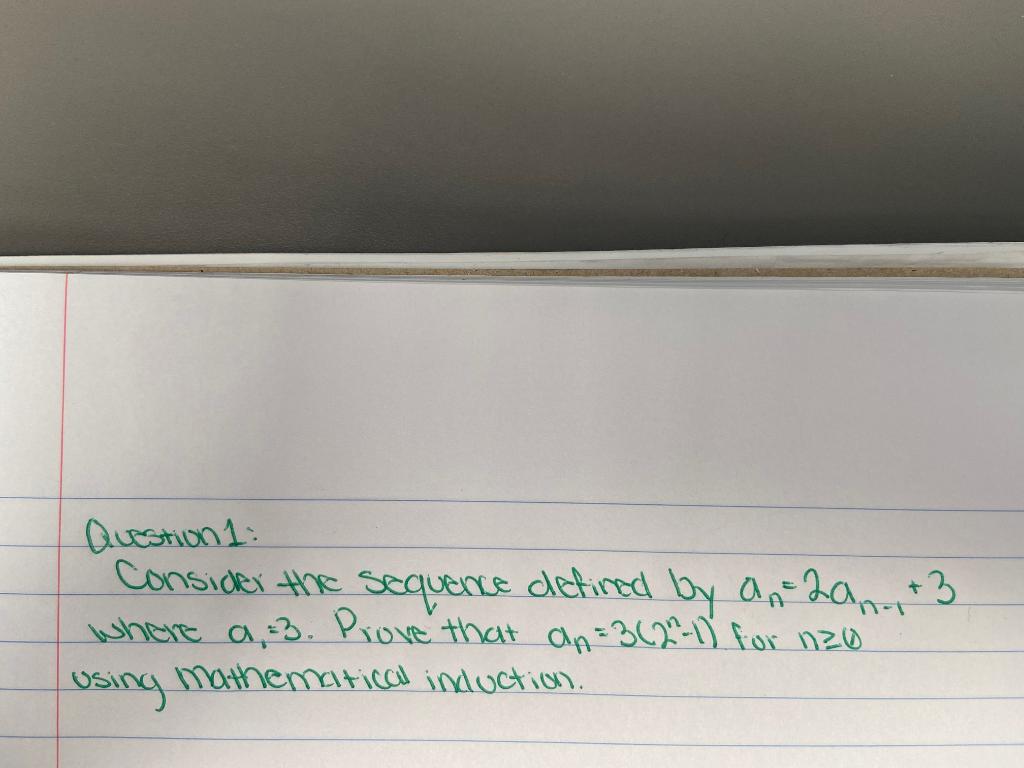 Question 1:
Consider the sequence defined by aₙ=2aₙ₋₁+3
where a₁=3. Prove that aₙ=3(2ⁿ-1) for n≥0
using mathematical induction.